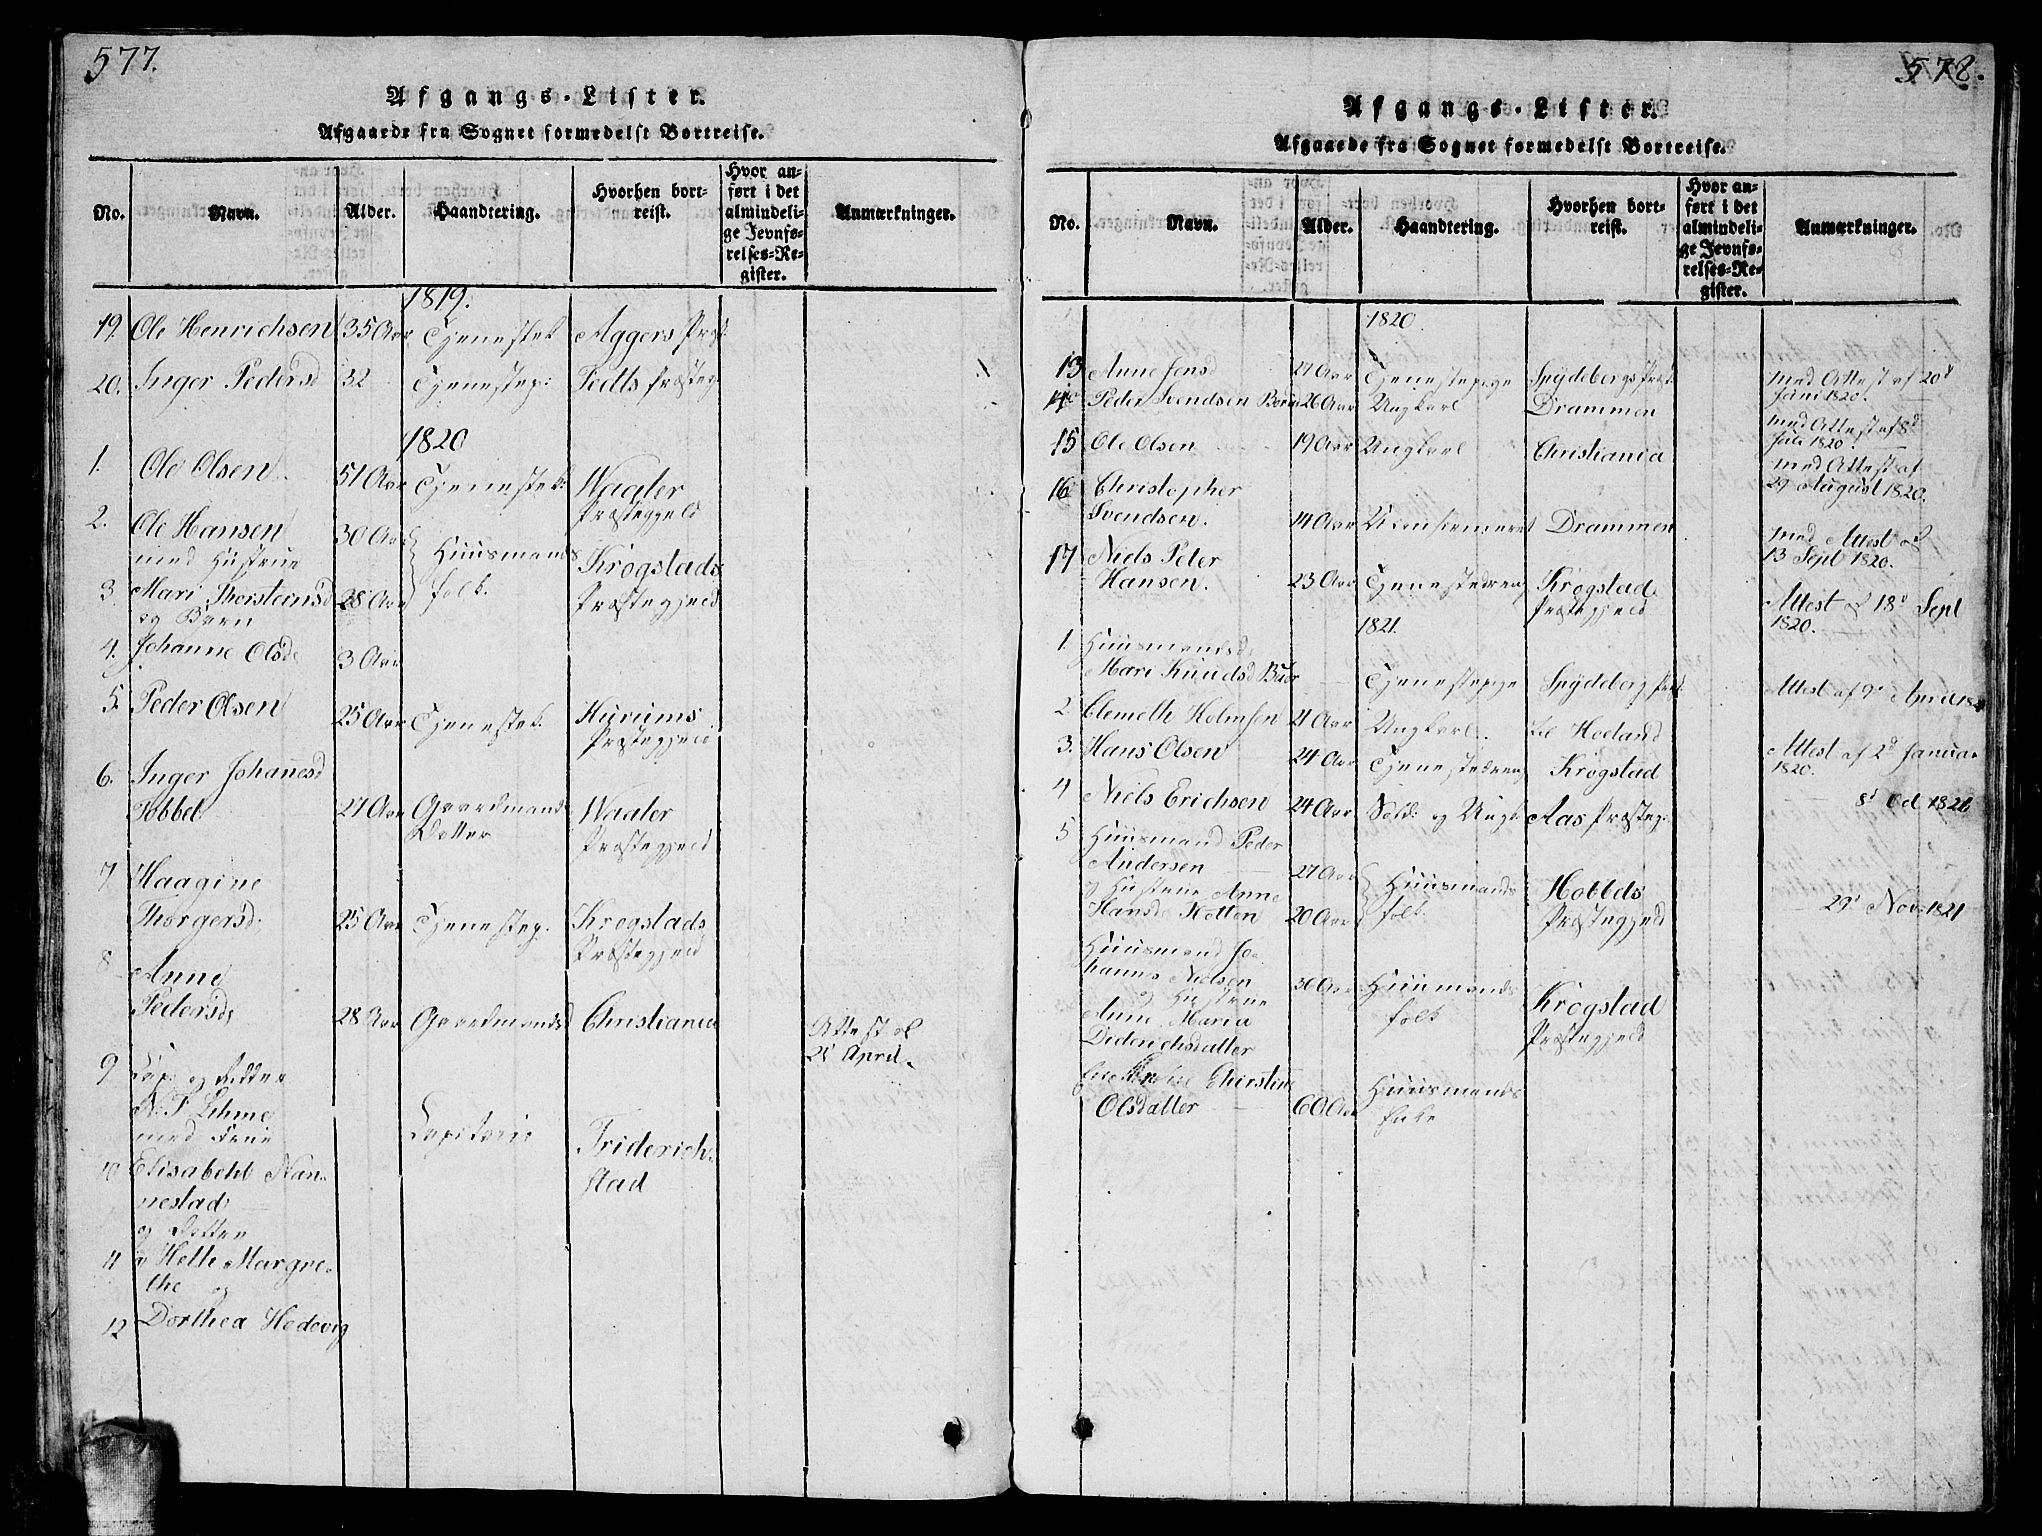 577.
Afgangs-Lister.
Afgaaede fra Sognet formedelst Bortreise.
No. Navn. Alder. Haandtering. Hvorhen bortreist. Hvor anført i det almindelige Jevnførelses-Register. Anmærkninger.
1819.
19. Ole Henrichsen 35 Aar Tjenestek. Aggers Præst:
20. Inger Pedersd 32 Tjenestep: Tedts Præsteg
1820
1. Ole Olsen 51 Aar Tjenestek: Waaler
Præstegjeld
2. Ole Hansen 30 Aar Huusmands Krogstads
med Hustrue
3. Mari Thorsteinsd 28 Aar folk. Præstegjeld
og Barn
4. Johanne Olsd. 3 Aar
5. Peder Olsen 25 Aar Tjenestek. Hurums
Præstegjeld
6. Inger Johannesd
Tobbel 27 Aar Gaardmands Waaler
Datter Præstegjeld
7 Haagine
Thorgersd. 25 Aar Tjenestep. Krogstads
Præstegjeld
8 Anne
Pedersd. 28 Aar Gaardmandsd Christiania Attest af
21 April.
9 Cap: og Ridder
N. F. Lihme
med Frue Capitain Friderich-
10 Elisabeht Nan-
nestad stad
og Døttre
11 Heth Margre-
the og
12 Dorthea Hedevig
578.
Afgangs-Lister.
Afgaaede fra Sognet formedelst Bortreise.
No. Navn. Alder. Haandtering. Hvorhen bortreist. Hvor anført i det almindelige Jevnførelses-Register. Anmærkninger.
1820.
13 Anne Jensd 27 Aar Tjenestepige Spydebergs Præst. med Attest af 20d
Juni 1820.
14 Peder Svendsen 26 Aar Ungkarl Drammen med Attest af 8d
Juli 1820.
15 Ole Olsen 19 Aar Ungkarl Christiania med Attest af
29 August 1820.
16 Christopher
Svendsen. 14 Aar Drammen med Attest af
13 Sept 1820.
17 Niels Peter
Hansen. 23 Aar Tjenestedreng Krogstad
Præstegjeld Attest af 18d Sept
1820.
1821.
1. Huusmandsd.
Mari Knudsd Buer Tjenestepige Spydeberg Præst: Attest af 9d April 182
2 Clemeth Holmsen 21 Aar Ungkarl. til Høland
3. Hans Olsen 24 Aar Tjenestedreng Krogstad Attest af 2d Januar
1820.
4 Niels Erichsen 24 Aar Sold: og Ungk. Aas Præsteg. 8d Oct 1821
5 Huusmand Peder
Andersen 27 Aar Huusmands Hobbels
og Hustrue Anne
Hansd. 20 Aar folk. Præstegjeld 29d Nov: 1821
Huusmand Jo-
hannes Nielsen 30 Aar Huusmands
og Hustrue Krogstad
Anne Maria folk
Diderichsdatter Præstegjeld
Christine Huusmands
Olsdatter 60 Aar Enke